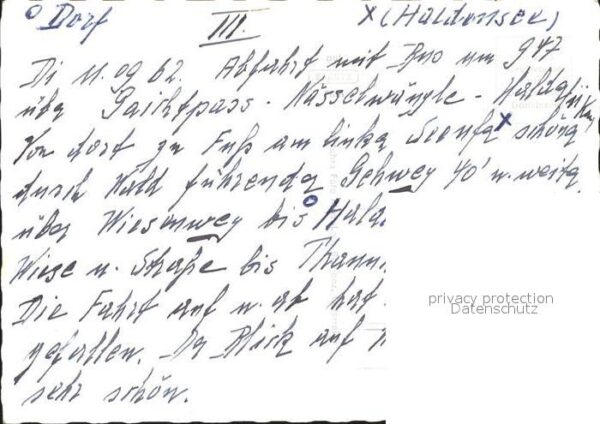 o Dorf III. x (Haldensee)
Di 11.09.62. Abfahrt mit Bus um 9 47
über Gaichtpass - Nässelwängle - Haldg
Von dort zu Fuß am linken Seeufer x schöne
durch Wald führender Gehweg 40' u. weiter
über Wiesenweg bis o Hald
Wiese u. Straße bis Thann
Die Fahrt auf u. ab hat
gefallen. Der Blick auf
sehr schön.
privacy protection
Datenschutz